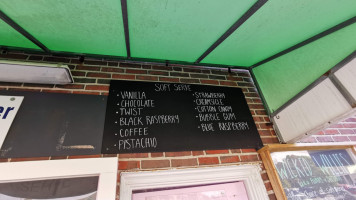 SOFT SERVE
- VANILLA
- CHOCOLATE
- TWIST
- BLACK RASPBERRY
- COFFEE
- PISTACHIO
- STRAWBERRY
- CREAMSICLE
- COTTON CANDY
- BUBBLE GUM
- BLUE RASPBERRY